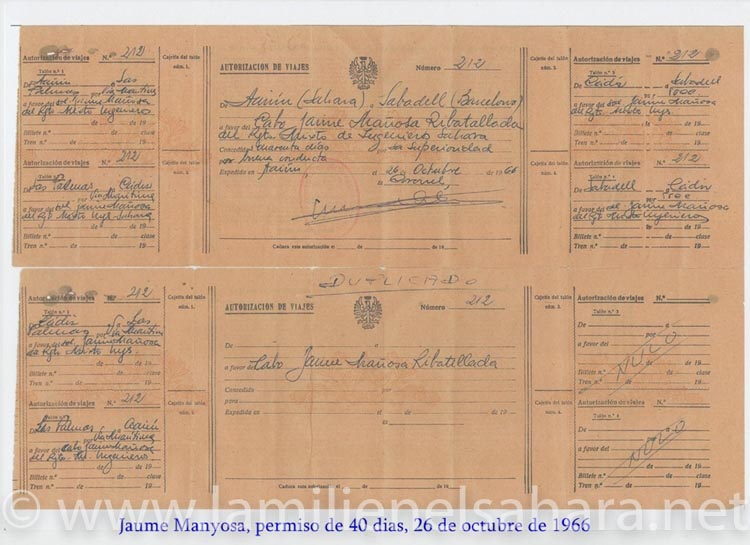 Autorización de viajes N.º 212
Talón n.º 1
De Aaiún a Las
Palmas por Vía Marítima
a favor del sol. Jaime Mañosa
del Rgto Mixto Ingenieros
Billete n.º - de - clase
Tren n.º - de - de 19
Autorización de viajes N.º 212
De Las Palmas a Cádiz
por Vía Marítima
a favor del sol. Jaime Mañosa
del Rgto Mixto Ings. Sahara
Billete n.º - de - clase
Tren n.º - de - de 19
Cajetín del talón
núm. 1.
Cajetín del talón
AUTORIZACION DE VIAJES Número 212
De Aaiún (Sahara) a Sabadell (Barcelona)
a favor del Cabo Jaime Mañosa Ribatallada
del Rgto. Mixto de Ingenieros Sahara
Concedido cuarenta días su Superioridad
por buena conducta
Expedido en Aaiún, 26 de Octubre de 1966
Coronel,
Caduca esta autorización el de de
Cajetín del talón
Cajetín del talón
Autorización de viajes N.º 212
De Cádiz a Sabadell
a favor del sol. Jaime Mañosa
del Rgto Mixto Ings.
Billete n.º - de - clase
Tren n.º - de - de 19
Autorización de viajes N.º 212
De Sabadell a Cádiz
a favor del sol. Jaime Mañosa
del Rgto Mixto Ingenieros
Billete n.º - de - clase
Tren n.º - de - de 19
DUPLICADO
Autorización de viajes N.º 212
Talón n.º 1
De Cádiz a Las
Palmas por Vía Marítima
a favor del sol. Jaime Mañosa
del Rgto Mixto Ings.
Tren n.º - de - de 19
Autorización de viajes N.º 212
De Las Palmas a Aaiún
por Vía Marítima
a favor del Cabo Jaime Mañosa
del Rgto. Mx. Ingenieros
Billete n.º - de - clase
Tren n.º - de - de 19
Cajetín del talón
Cajetín del talón
AUTORIZACION DE VIAJES Número 212
De a
a favor del Cabo Jaime Mañosa Ribatallada
Concedido por
para
Expedido en a de de 19
Caduca esta autorización el de de
Cajetín del talón
Cajetín del talón
Autorización de viajes N.º
Talón n.º 3
De a
por
a favor del
NULO
Billete n.º - de - clase
Tren n.º - de - de 19
Autorización de viajes N.º
De a
por
a favor del
NULO
Billete n.º - de - clase
Tren n.º - de - de 19
© www.lamilienelsahara.net
Jaume Manyosa, permiso de 40 dias, 26 de octubre de 1966